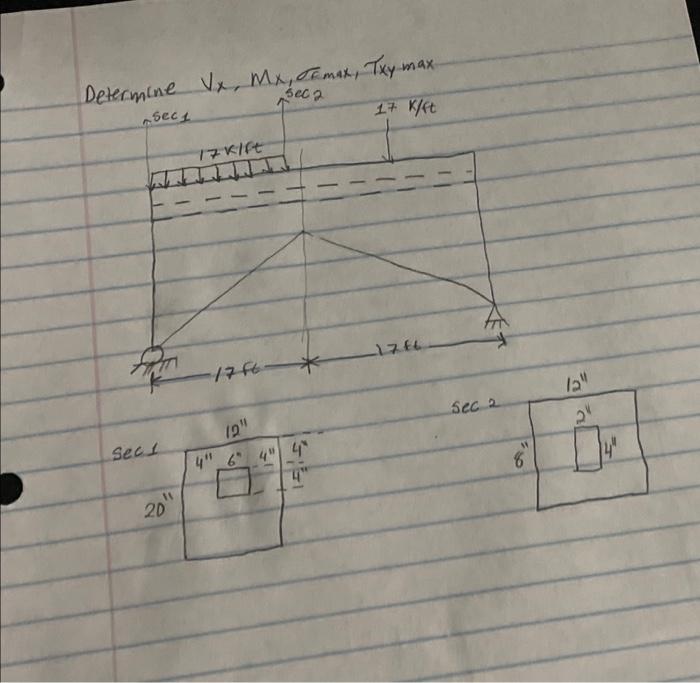 Determine Vx, Mx, σc max, Txy max
sec 1
sec 2
17 K/ft
17 K/ft
17 ft
17 ft
sec 1
12"
4" 6" 4" 4"
4"
20"
sec 2
12"
2"
8"
4"